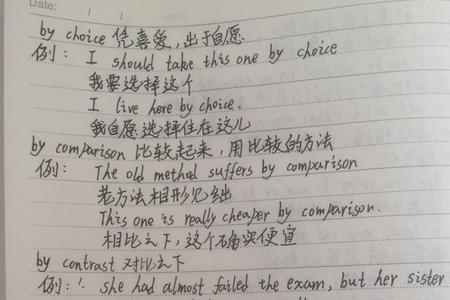 Date:
by choice 凭喜爱，出于自愿
例： I should take this one by choice
我要选择这个
I live here by choice.
我自愿选择住在这儿
by comparison 比较起来，用比较的方法
例： The old methal suffers by comparison
老方法相形见绌
This one is really cheaper by comparison.
相比之下，这个确实便宜
by contrast 对比之下
例： she had almost failed the exam, but her sister